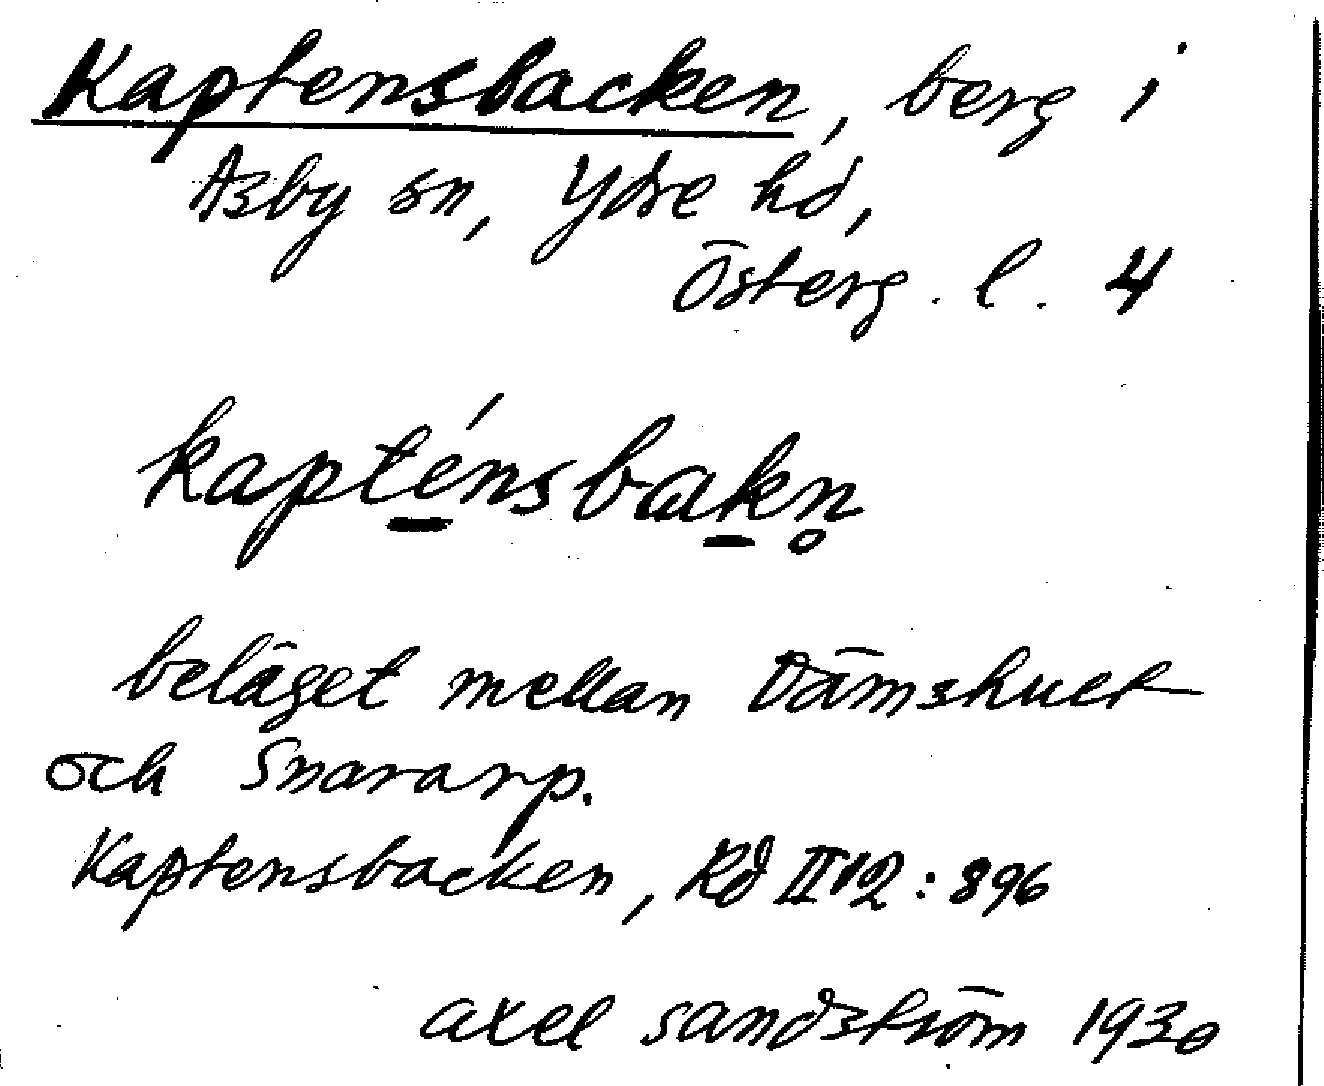 Kaptensbacken, berg i
Asby sn, Ydre hd,
Österg. l. 4
kapténsbakn̥
beläget mellan Dämshult
och Snararp.
Kaptensbacken, Rd II 12 : 896
axel sandström 1930